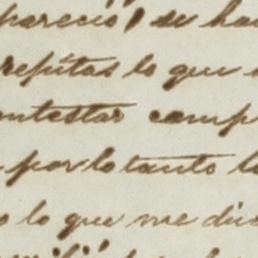 pareció, su ha
repitas lo que
ontestar comp
por lo tanto l
o lo que me dic